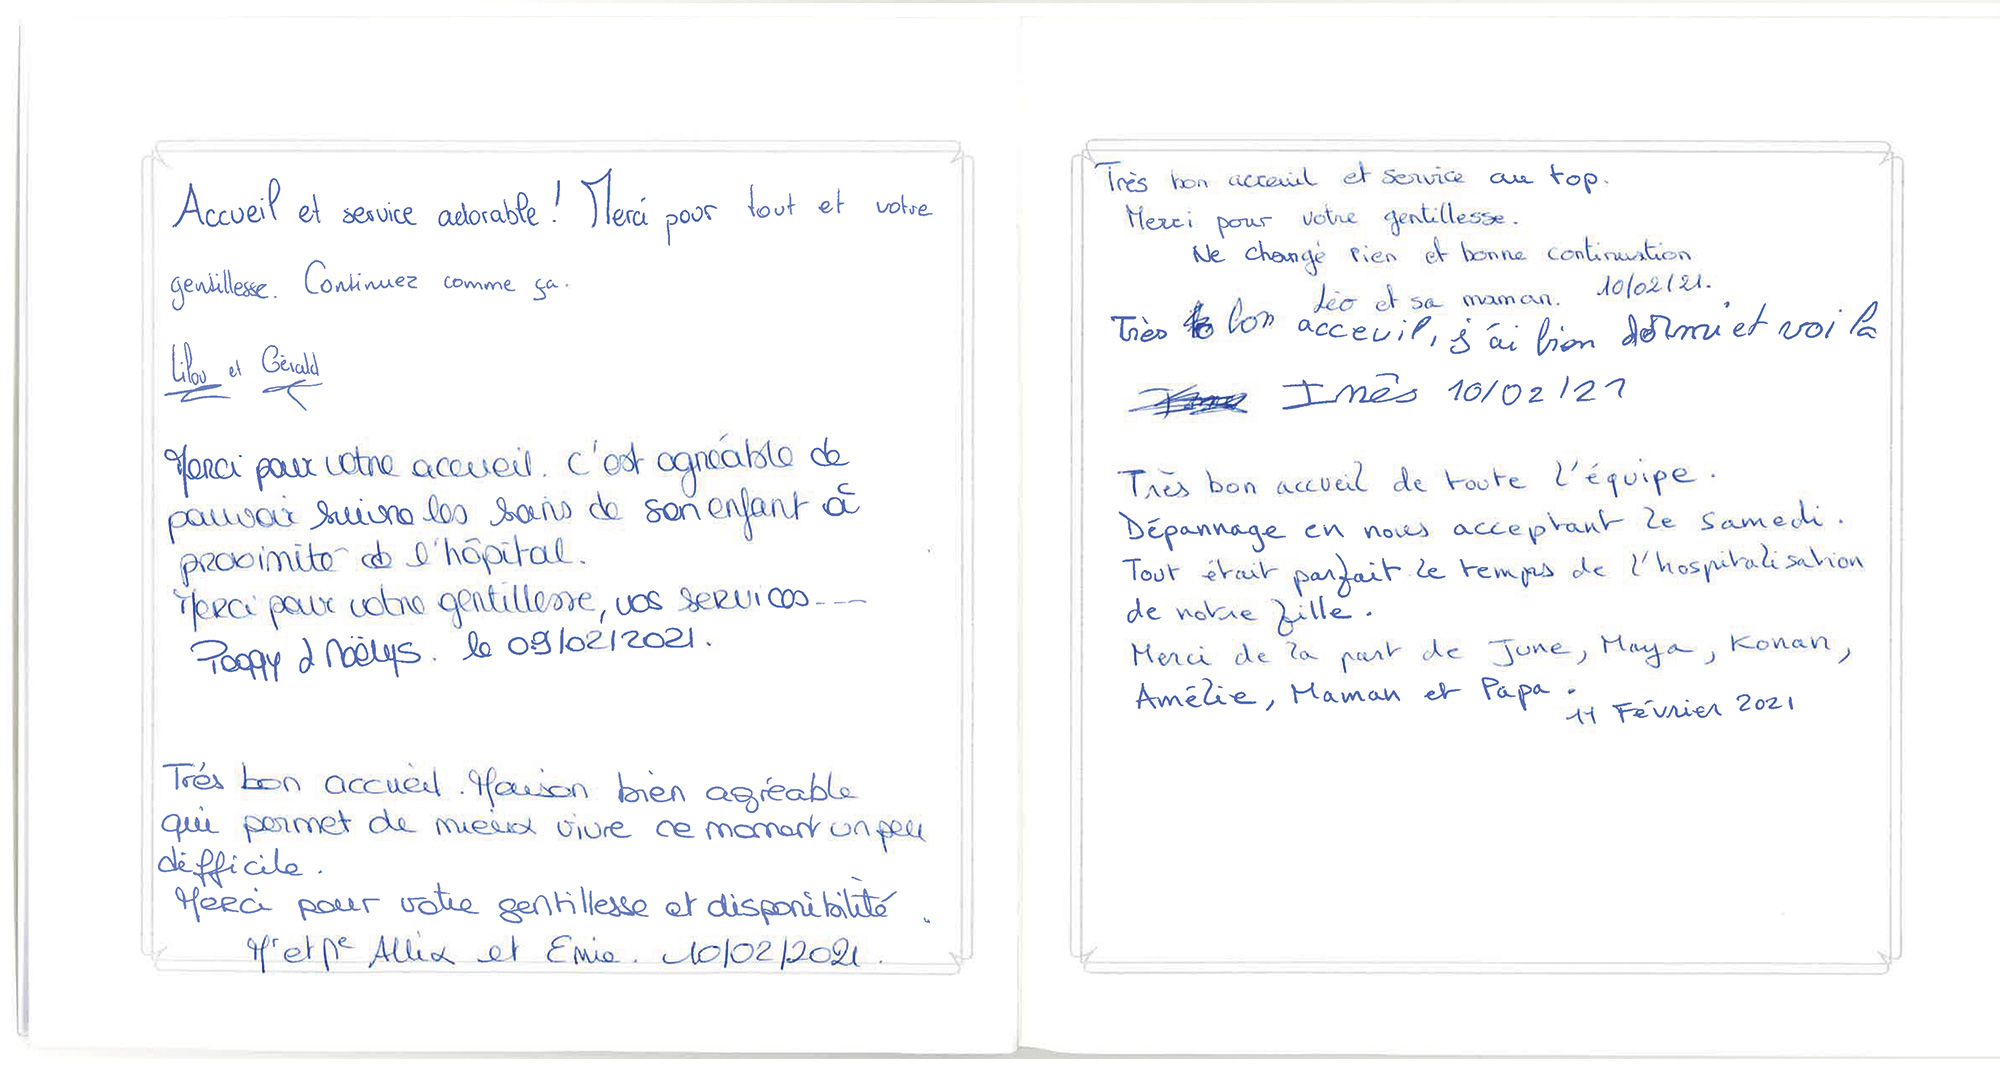 Accueil et service adorable ! Merci pour tout et votre
gentillesse. Continuez comme ça.
Lilou et Gérald
Merci pour votre accueil. C'est agréable de
pouvoir suivre les soins de son enfant à
proximité de l'hôpital.
Merci pour votre gentillesse, vos services----
Pooppy d Noëlys. le 09/02/2021.
Trés bon accueil. Maison bien agréable
qui permet de mieux vivre ce moment un peu
difficile.
Merci pour votre gentillesse et disponibilité.
Mr et Me Allix et Emie. 10/02/2021.
Très bon acceuil et service au top.
Merci pour votre gentillesse.
Ne changé rien et bonne continuation
Léo et sa maman. 10/02/21.
Très bon acceuil, j'ai bien dormi et voila
Inès 10/02/21
Très bon accueil de toute l'équipe.
Dépannage en nous acceptant le samedi.
Tout était parfait le temps de l'hospitalisation
de notre fille.
Merci de la part de June, Maya, Konan,
Amélie, Maman et Papa.
11 Février 2021